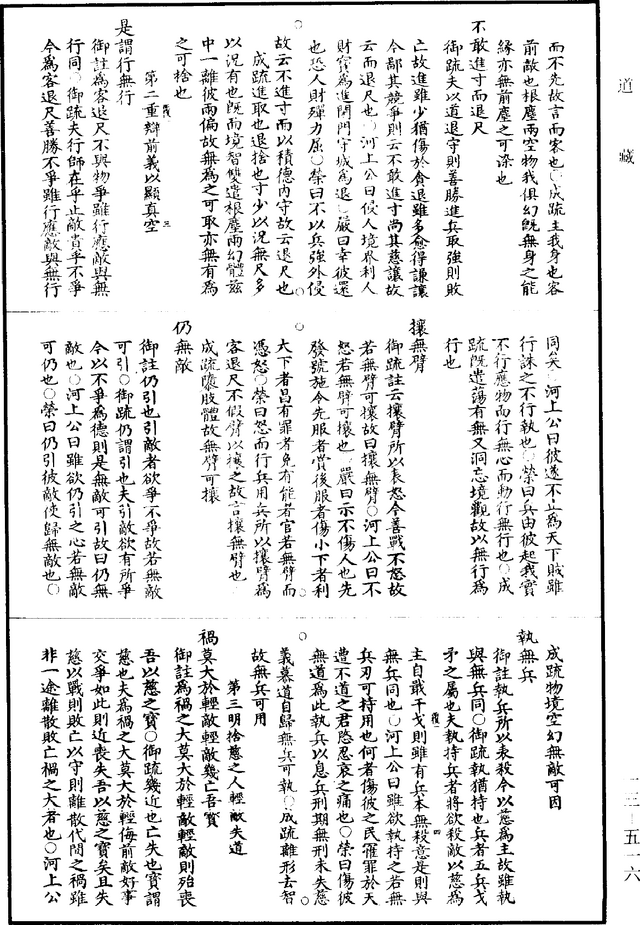 道藏
而不先故言而客也○成疏主我身也客
前敵也根塵兩空物我俱幻既無身之能
緣亦無前塵之可染也
不敢進寸而退尺
御疏夫以道退守則善勝進兵取強則敗
亡故進雖少猶傷於貪退雖多愈得謙讓
今鄙其競爭則云不敢進寸尚其慈讓故
云而退尺也○河上公曰侵人境界利人
財寶為進閉門守城為退○嚴曰幸彼還
也恐人財殫力屈○榮曰不以兵強外侵
故云不進寸而以積德內守故云退尺也
成疏進取也退捨也寸少以況無尺多
以況有也既而境智雙遣根塵兩幻體茲
中一離彼兩偏故無為之可取亦無有為
之可捨也
第二重辯前義以顯真空
是謂行無行
御註為客退尺不與物爭雖行應敵與無
行同○御疏夫行師在乎止敵貴乎不爭
今為客退尺善勝不爭雖行應敵與無行
同矣○河上公曰彼遂不止為天下賊雖
行誅之不行執也○榮曰兵由彼起我實
不行應物而行無心而動行無行也○成
疏既遣蕩有無又洞忘境觀故以無行為
行也
攘無臂
御疏註云攘臂所以表怒令善戰不怒故
若無臂可攘故曰攘無臂○河上公曰不
怒若無臂可攘也○嚴曰示不傷人也先
發號施令先服者賞後服者傷小下者利
大下者昌有罪者免有能者官若無臂而
憑怒○榮曰怒而行兵用兵所以攘臂為
客退尺不假臂以攘之故言攘無臂也
成疏隳肢體故無臂可攘
仍無敵
御註仍引也引敵者欲爭不爭故若無敵
可引○御疏仍謂引也夫引敵欲有所爭
今以不爭為德則是無敵可引故曰仍無
敵也○河上公曰雖欲仍引之心若無敵
可仍也○榮曰仍引彼敵使歸無敵也○
成疏物境空幻無敵可因
執無兵
御註執兵所以表殺令以慈為主故雖執
與無兵同○御疏執猶持也兵者五兵戈
矛之屬也夫執持兵者將欲殺敵以慈為
主自戢干戈則雖有兵本無殺意是則與
無兵同也○河上公曰雖欲執持之若無
兵刃可持用也何者傷彼之民罹罪於天
遭不道之君愍忍哀之痛也○榮曰傷彼
無道為此執兵以息兵刑期無刑未失慈
義慕道自歸無兵可執○成疏離形去智
故無兵可用
第三明捨慈之人輕敵失道
禍莫大於輕敵輕敵幾亡吾寶
御註為禍之大莫大於輕敵輕敵則殆喪
吾以慈之寶○御疏幾近也亡失也寶謂
慈也夫為禍之大莫大於輕侮前敵好事
交爭如此則近喪失吾以慈之寶矣且失
慈以戰則敗亡以守則離散代間之禍雖
非一途離散敗亡禍之大者也○河上公
一三—五一六